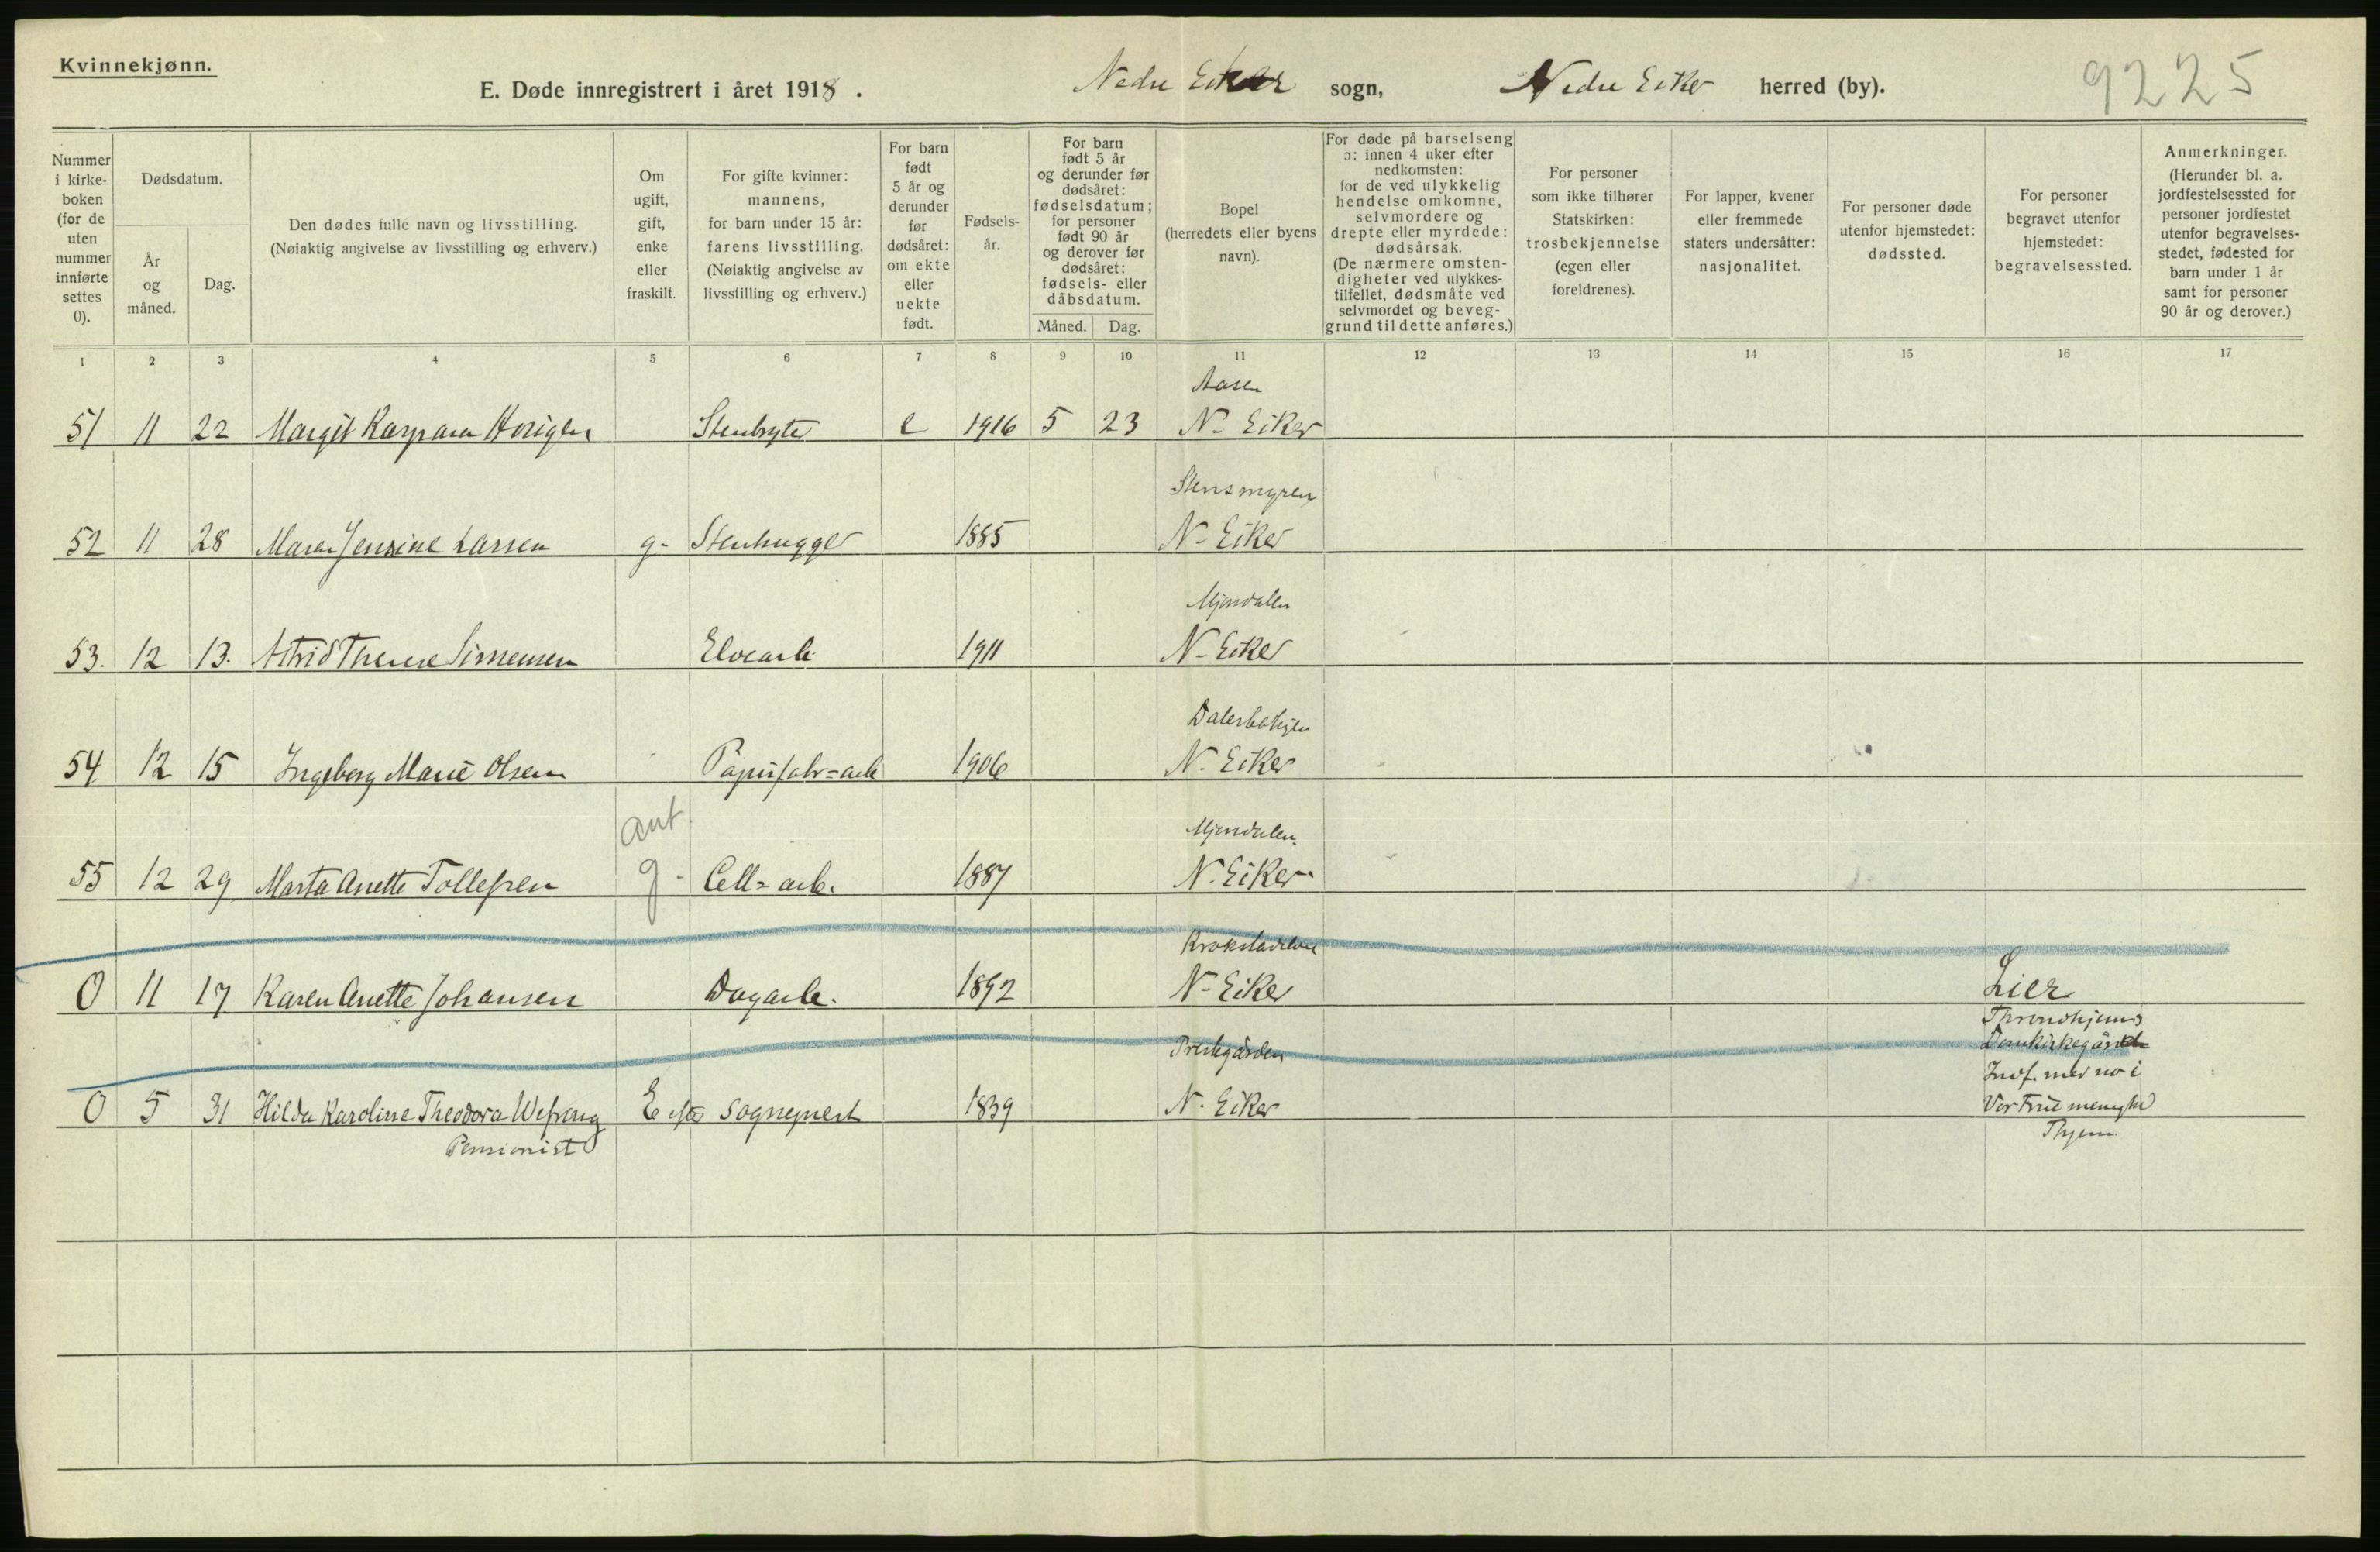 Kvinnekjønn.
E. Døde innregistrert i året 1918. Nedre Eiker sogn, Nedre Eiker herred (by). 9225
Nummer i kirkeboken (for de uten nummer innførte settes 0).
Dødsdatum.
År og måned.
Dag.
Den dødes fulle navn og livsstilling.
(Nøiaktig angivelse av livsstilling og erhverv.)
Om ugift, gift, enke eller fraskilt.
For gifte kvinner: mannens, for barn under 15 år: farens livsstilling. (Nøiaktig angivelse av livsstilling og erhverv.)
For barn født 5 år og derunder før dødsåret: om ekte eller uekte født.
Fødselsår.
For barn født 5 år og derunder før dødsåret: fødselsdatum; for personer født 90 år og derover før dødsåret: fødsels- eller dåbsdatum.
Måned. Dag.
Bopel (herredets eller byens navn).
For døde på barselseng ɔ: innen 4 uker efter nedkomsten: for de ved ulykkelig hendelse omkomne, selvmordere og drepte eller myrdede: dødsårsak. (De nærmere omstendigheter ved ulykkestilfellet, dødsmåte ved selvmordet og beveggrund til dette anføres.)
For personer som ikke tilhører Statskirken: trosbekjennelse (egen eller foreldrenes).
For lapper, kvener eller fremmede staters undersåtter: nasjonalitet.
For personer døde utenfor hjemstedet: dødssted.
For personer begravet utenfor hjemstedet: begravelsessted.
Anmerkninger. (Herunder bl. a. jordfestelsessted for personer jordfestet utenfor begravelsesstedet, fødested for barn under 1 år samt for personer 90 år og derover.)
1 2 3 4 5 6 7 8 9 10 11 12 13 14 15 16 17
Aasen
51 11 22 Margit Stenbryter e 1916 5 23 N- Eiker
Stensmyren
52 11 28 Maren Jensine Larsen g- Stenhugger 1885 N- Eiker
Mjøndalen
53. 12 13. Astrid Therese Simensen Elvearb. 1911 N- Eiker
54 12 15 Ingeborg Marie Olsen Papirfabr=arb 1906 N- Eiker
ant
Mjøndalen.
55 12 29 Marta Anette Tollefsen g- Cell=arb. 1887 N. Eiker
Krokstadelven
0 11 17 Karen Anette Johansen Dagarb. 1892 N- Eiker Lier
Throndhjems
Prestegården Domkirkegård
Indf. med no i
0 5 31 Hilda Karoline Theodora Wefring E efter Sogneprest 1839 N. Eiker Vor Frue menighed
Pensionist Thjem